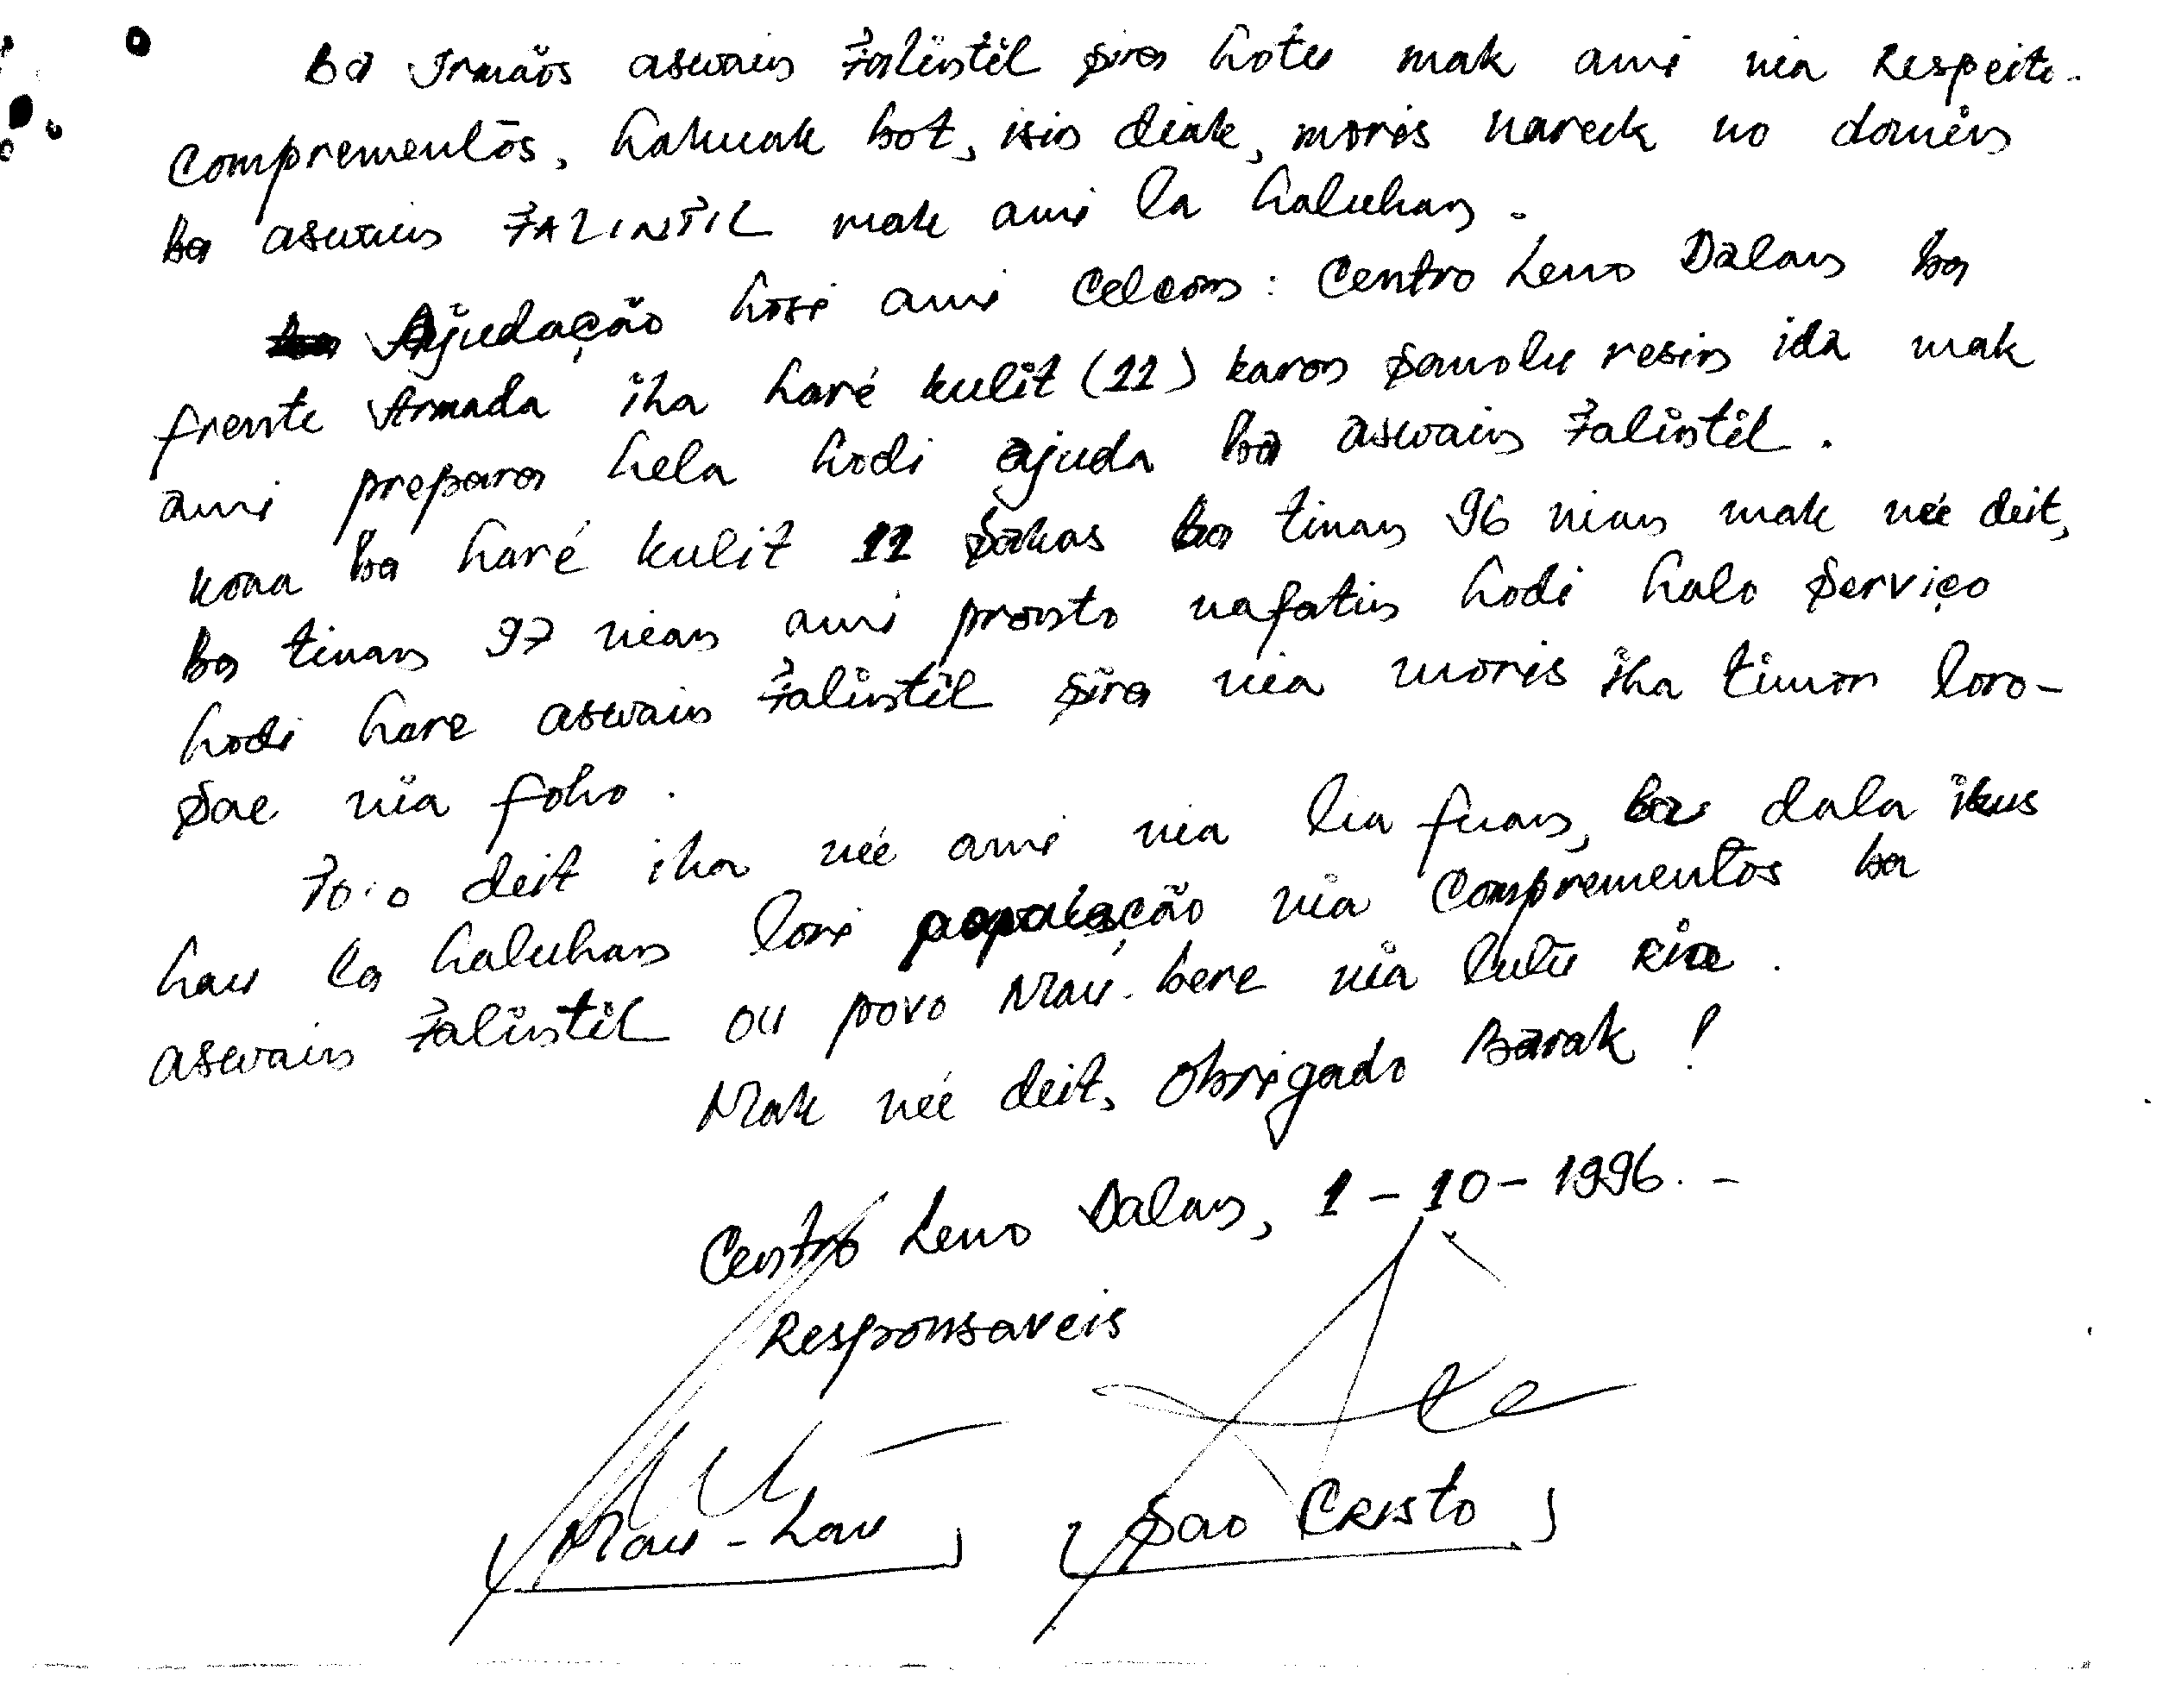 ba Irmãos aswain Falintil sira hotu mak ami nia Respeito.
Comprementos, hakuak bot, isin diak, moris nareck no domin
ba aswain FALINTIL mak ami la haluhan.
Ajudação hosi ami celcom: Centro Leno Dalan ba
frente Armada iha haré kulit (11) karon sanolu resin ida mak
ami prepara hela hodi ajuda ba aswain Falintil.
kona ba haré kulit 11 sakas ba tinan 96 nian mak neé deit,
ba tinan 97 nian ami pronto nafatin hodi halo serviço
hodi hare aswain Falintil sira nia moris iha timor loro-
sae nia foho.
deit iha neé ami nia lia fuan, dala ikus
hau la haluhan lori população nia Comprementos ba
aswain Falintil ou povo Mau-bere nia lutu
Mak neé deit, Obrigado Barak!
Centro Leno Dalan, 1-10-1996.-
Responsaveis
Mau-Lau Sao CRISTO